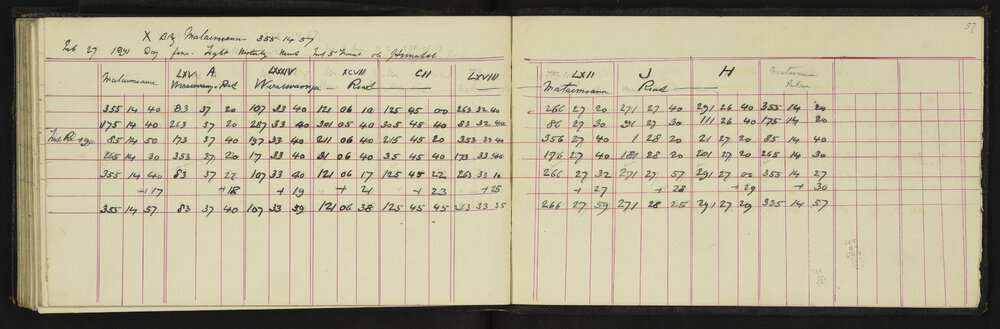 X Brg Mataimoana 355 . 14 . 57
Feb 27 1931 Day fine. Light Westerly Wind
37
LXV A LXXXIV XCVII CII LXVIII
Mataimoana Rd Road
355 14 40 83 37 20 107 33 40 121 06 10 125 45 00 263 32 40
175 14 40 263 37 20 287 33 40 301 05 40 305 45 40 83 32 40
85 14 50 173 37 40 197 33 40 211 06 40 215 45 20 353 33 40
265 14 30 353 37 20 17 33 40 31 06 40 35 45 40 173 33 40
355 14 40 83 37 22 107 33 40 121 06 17 125 45 22 263 33 10
+17 +18 +19 +21 +23 +25
355 14 57 83 37 40 107 33 59 121 06 38 125 45 45 263 33 35
LXII J H Mataimoana
Mataimoana Road Return
266 27 20 271 27 40 291 26 40 355 14 20
86 27 30 91 27 30 111 26 40 175 14 20
356 27 40 1 28 20 21 27 20 85 14 40
176 27 40 181 28 20 201 27 20 265 14 30
266 27 32 271 27 57 291 27 00 355 14 27
+27 +28 +29 +30
266 27 59 271 28 25 291 27 29 335 14 57